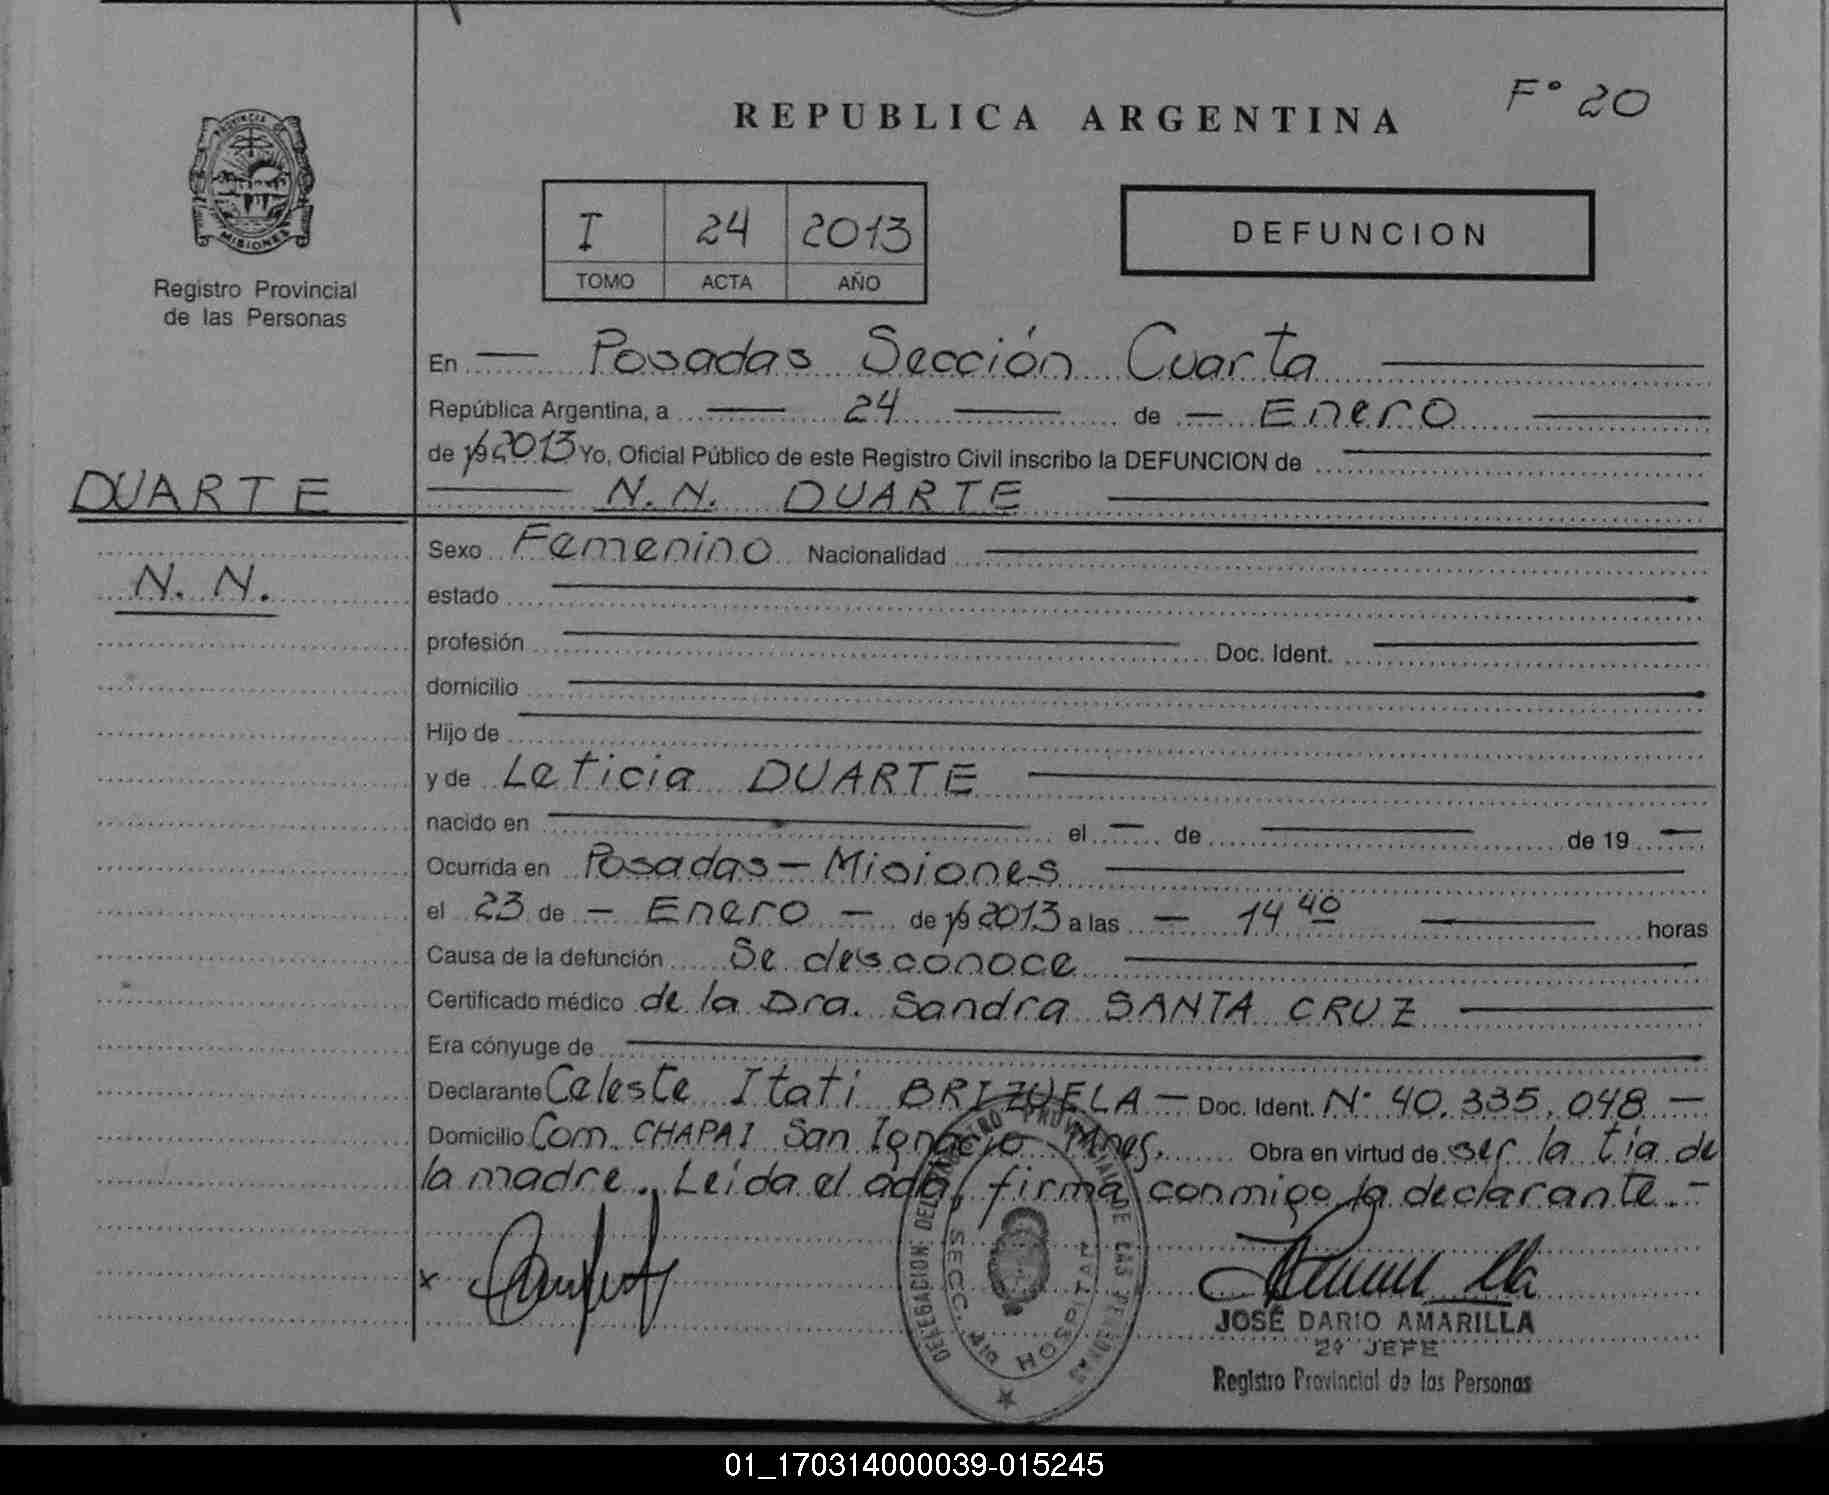 F° 20
REPUBLICA ARGENTINA
PROVINCIA DE
MISIONES
Registro Provincial
de las Personas
I 24 2013
TOMO ACTA AÑO
DEFUNCION
En Posadas Sección Cuarta
República Argentina, a 24 de Enero
de 19 2013 Yo, Oficial Público de este Registro Civil inscribo la DEFUNCION de
DUARTE
N. N. DUARTE
Sexo Femenino Nacionalidad
N. N.
estado
profesión Doc. Ident.
domicilio
Hijo de
y de Leticia DUARTE
nacido en el de de 19
Ocurrida en Posadas - Misiones
el 23 de - Enero - de 19 2013 a las - 14 40 horas
Causa de la defunción Se desconoce
Certificado médico de la Dra. Sandra SANTA CRUZ
Era cónyuge de
Declarante Celeste Itati BRIZUELA - Doc. Ident. N° 40.335.048 -
Domicilio Com. CHAPAI San Ignacio Mnes. Obra en virtud de ser la tia de
la madre. Leida el acta, firma conmigo la declarante.-
x
DELEGACION DEL REGISTRO PROVINCIAL DE LAS PERSONAS
SECC. 4ta HOSPITAL
JOSÉ DARIO AMARILLA
2º JEFE
Registro Provincial de las Personas
01_170314000039-015245